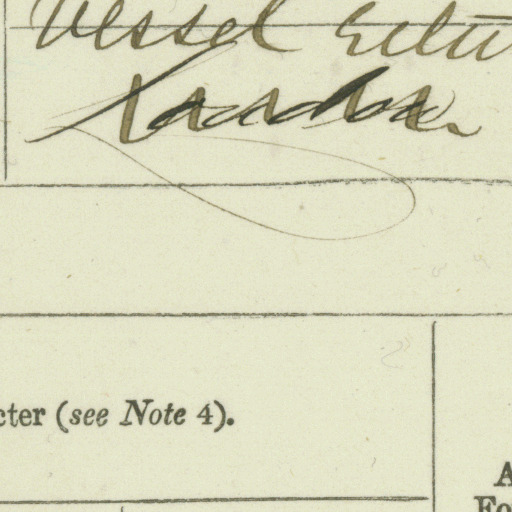 Vessel
London
cter (see Note 4).
A
Fo